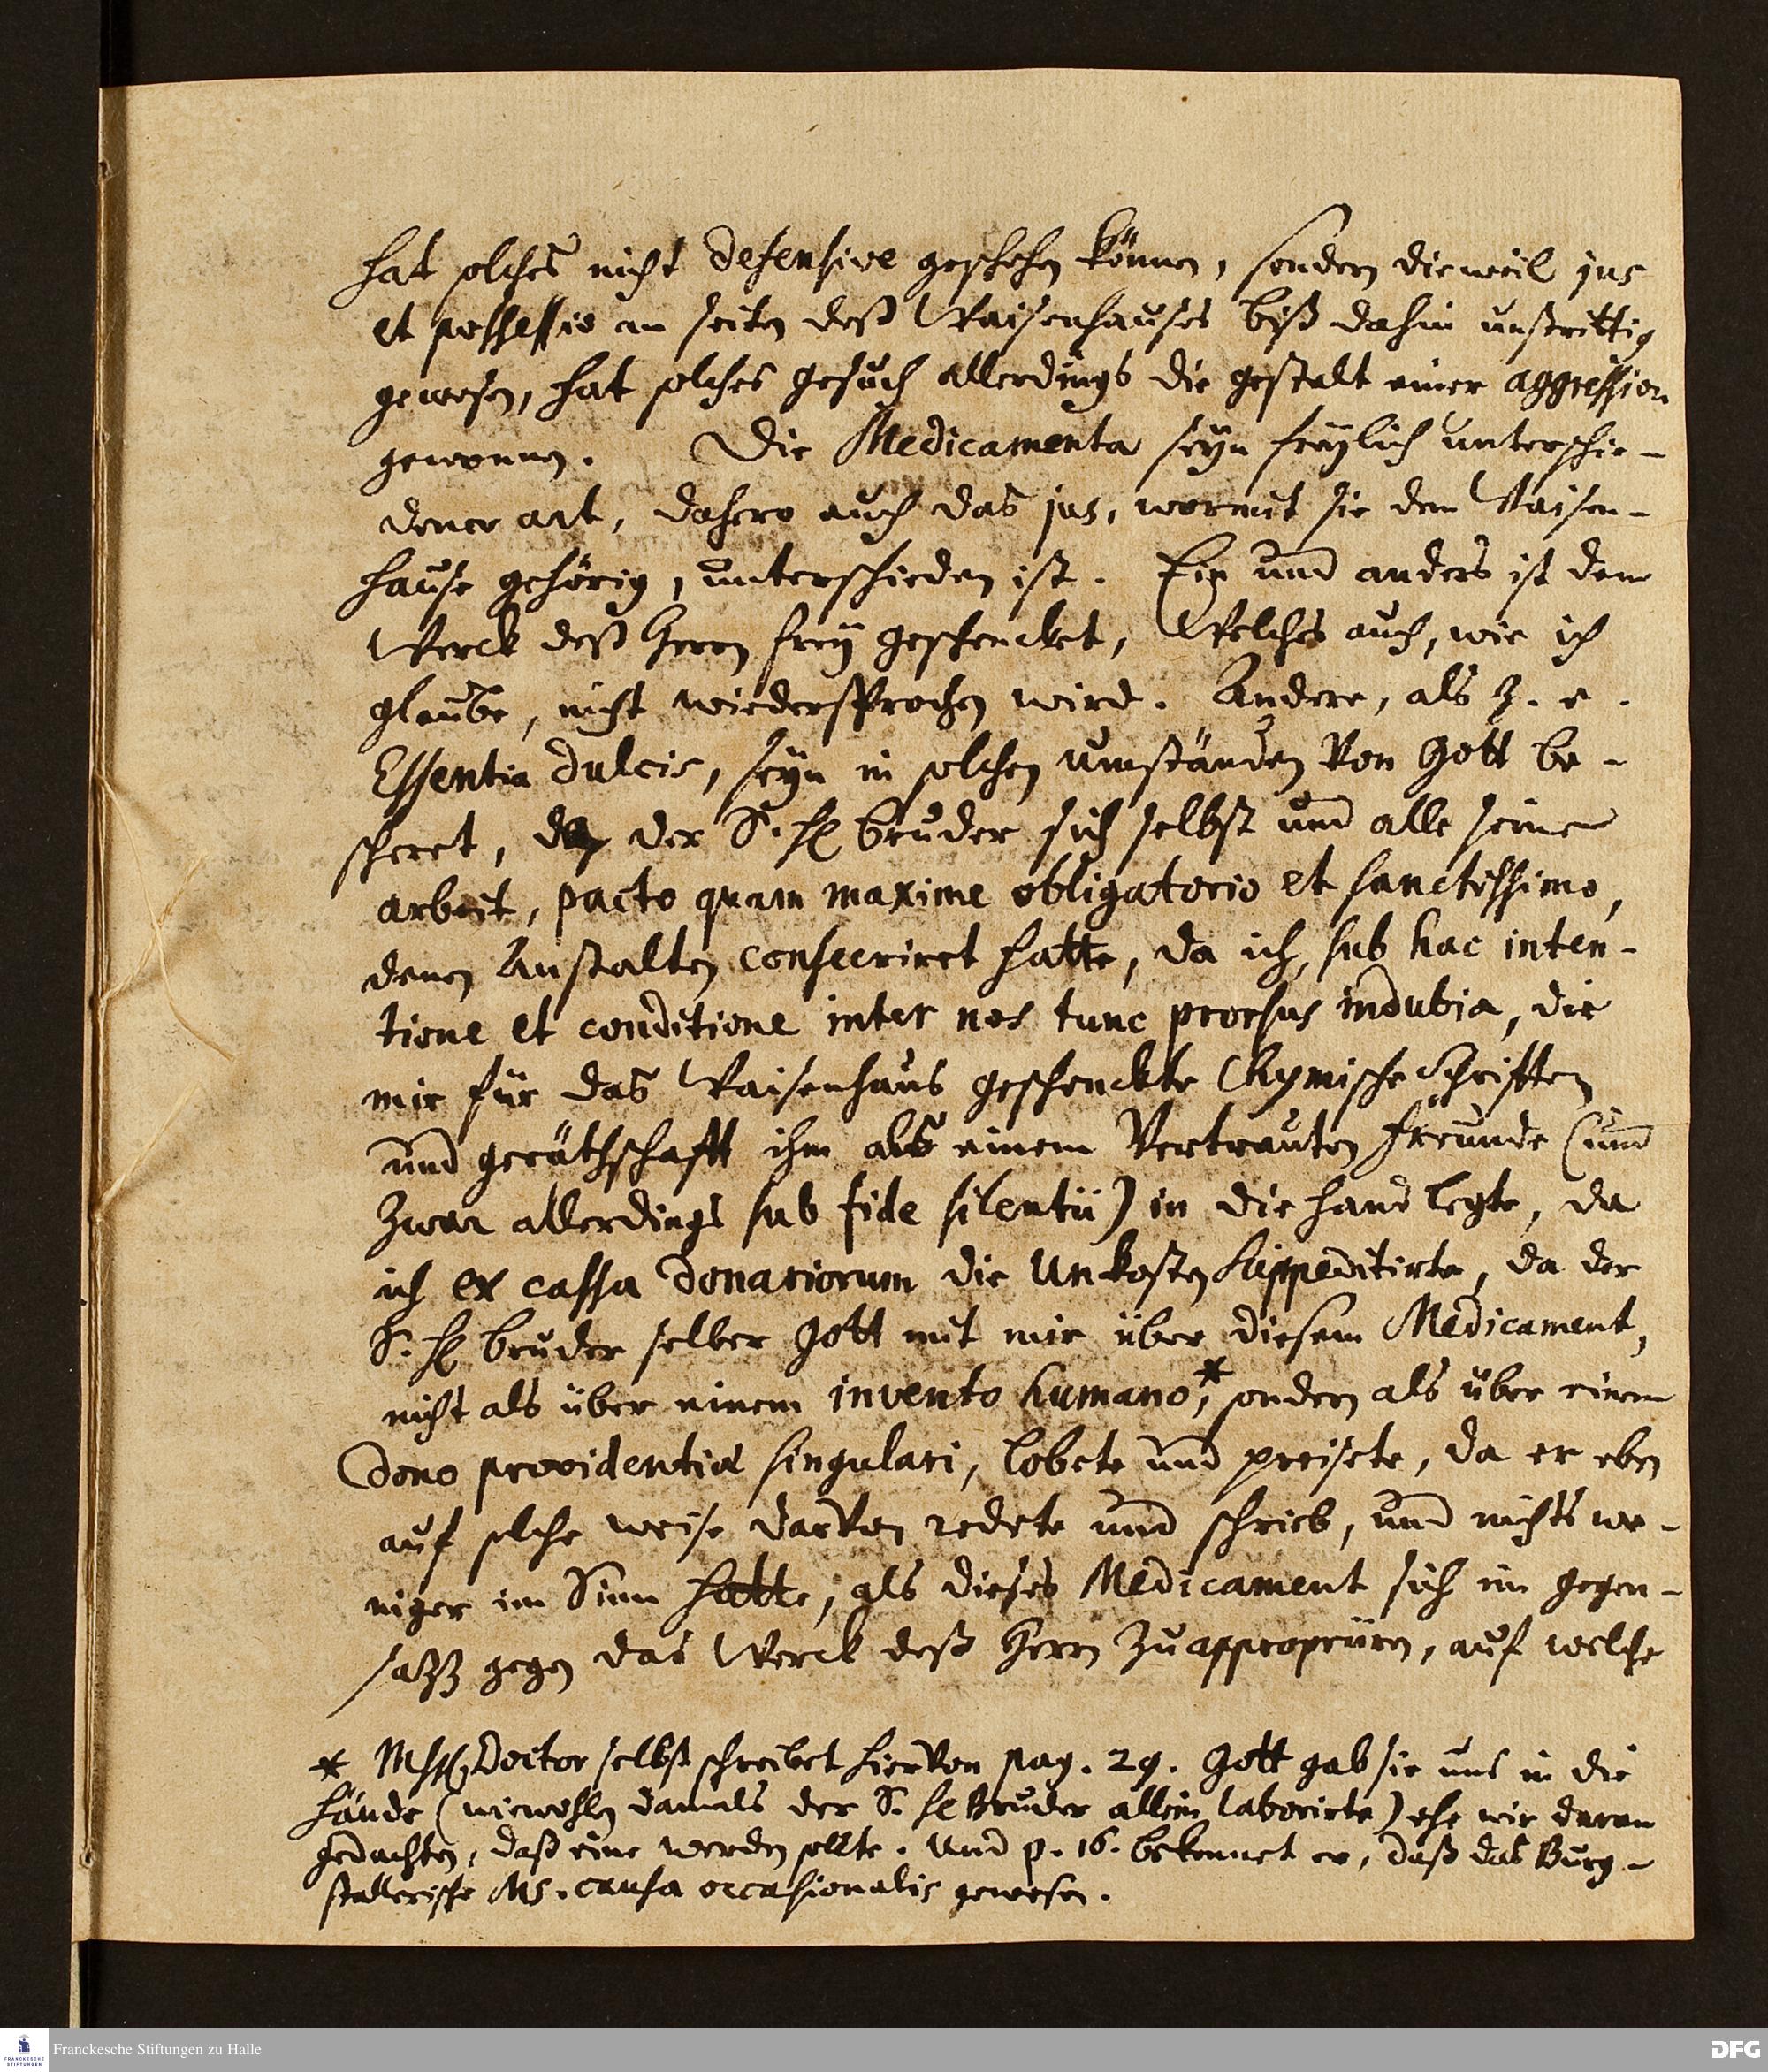 hat solches nicht defensive geschehen können, sondern dieweil jus
et possessio an seiten deß Waisenhauses biß dahin unstrittig
gewesen, hat solches gesuch allerdings die gestalt einer aggression
gewonnen. Die Medicamenta seÿn freÿlich unterschie-
dener art, dahero auch das jus, wormit sie dem Waisen-
hause gehörig, unterschieden ist. Ein und anders ist dem
Werck deß Herrn freÿ geschencket, Welches auch, wie ich
glaube, nicht wiedersprochen wird. Andere, als z. e.
Essentia dulcis, seÿn in solchen umständen von Gott be-
scheret, da der S. H bruder sich selbst und alle seine
arbeit, pacto quam maxime obligatorio et sanctissimo,
denen Anstalten consecriret hatte, da ich, sub hac inten-
tione et conditione inter nos tunc prorsus indubia, die
mir für das Waisenhaus geschenckte Chymische Schrifften
und geräthschafft ihm als einem Vertrauten freunde (und
zwar allerdings sub fide silentii) in die hand legte, da
ich ex cassa donariorum die Unkosten suppeditirte, da der
S. H bruder selber Gott mit mir über diesem Medicament,
nicht als über einem invento humano,* sondern als über einem
dono providentiæ singulari, lobete und preisete, da er eben
auf solche weise darvon redete und schrieb, und nichts we-
niger im Sinn hatte, als dieses Medicament sich im gegen-
satz gegen das Werck deß Herrn zu appropriiren, auf welche
* Doctor selbst schreibet hiervon pag. 29. Gott gab sie uns in die
Hände (wiewohln damals der S. H Bruder allein laborirte) ehe wir daran
gedachten, daß eine werden sollte. Und p. 16. bekennet er, daß das Burg-
stallerische Ms. causa occasionalis gewesen.
Franckesche Stiftungen zu Halle
FRANCKESCHE
STIFTUNGEN
DFG